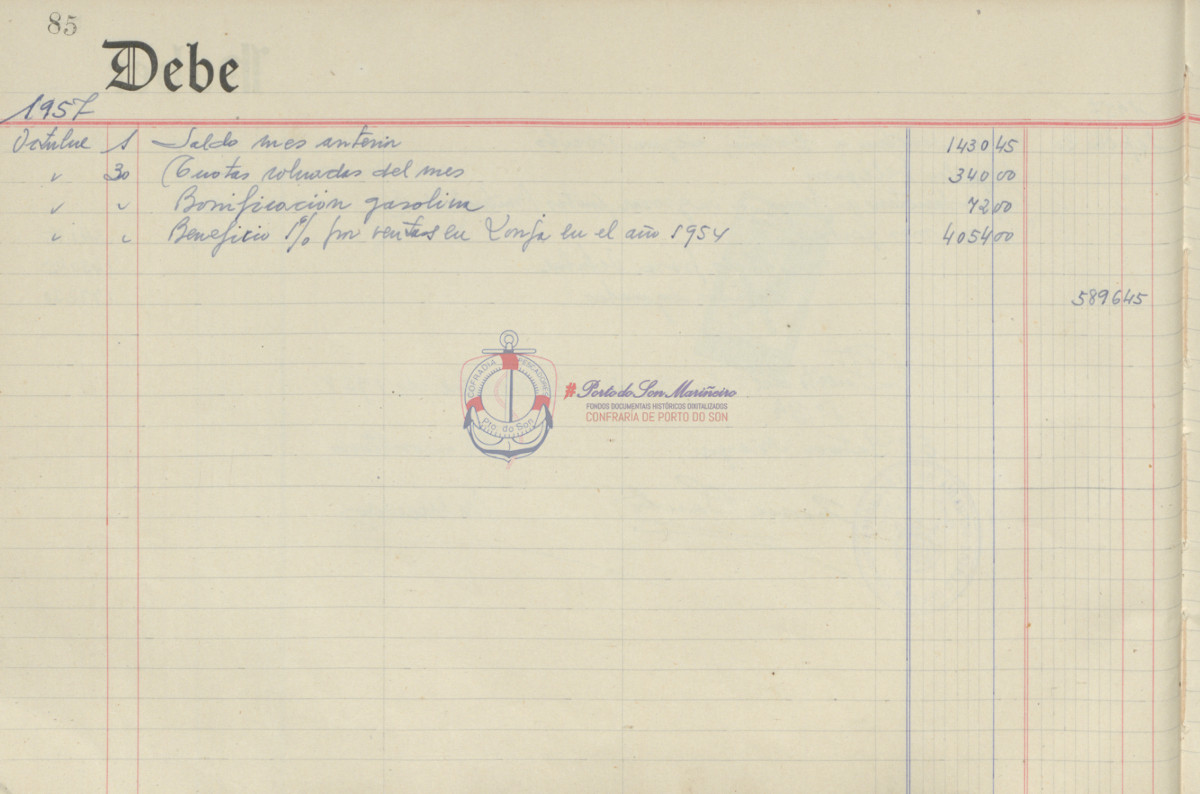 85
Debe
1957
Octubre 1 Saldo mes anterior 1430 45
" 30 Cuotas cobradas del mes 340 00
" " Bonificación gasolina 72 00
" " Beneficio 1% por ventas en Lonja en el año 1954 4054 00
5896 45
COFRADIA PESCADORES
Pto. do Son
#Porto do Son Mariñeiro
FONDOS DOCUMENTAIS HISTÓRICOS DIXITALIZADOS
CONFRARÍA DE PORTO DO SON